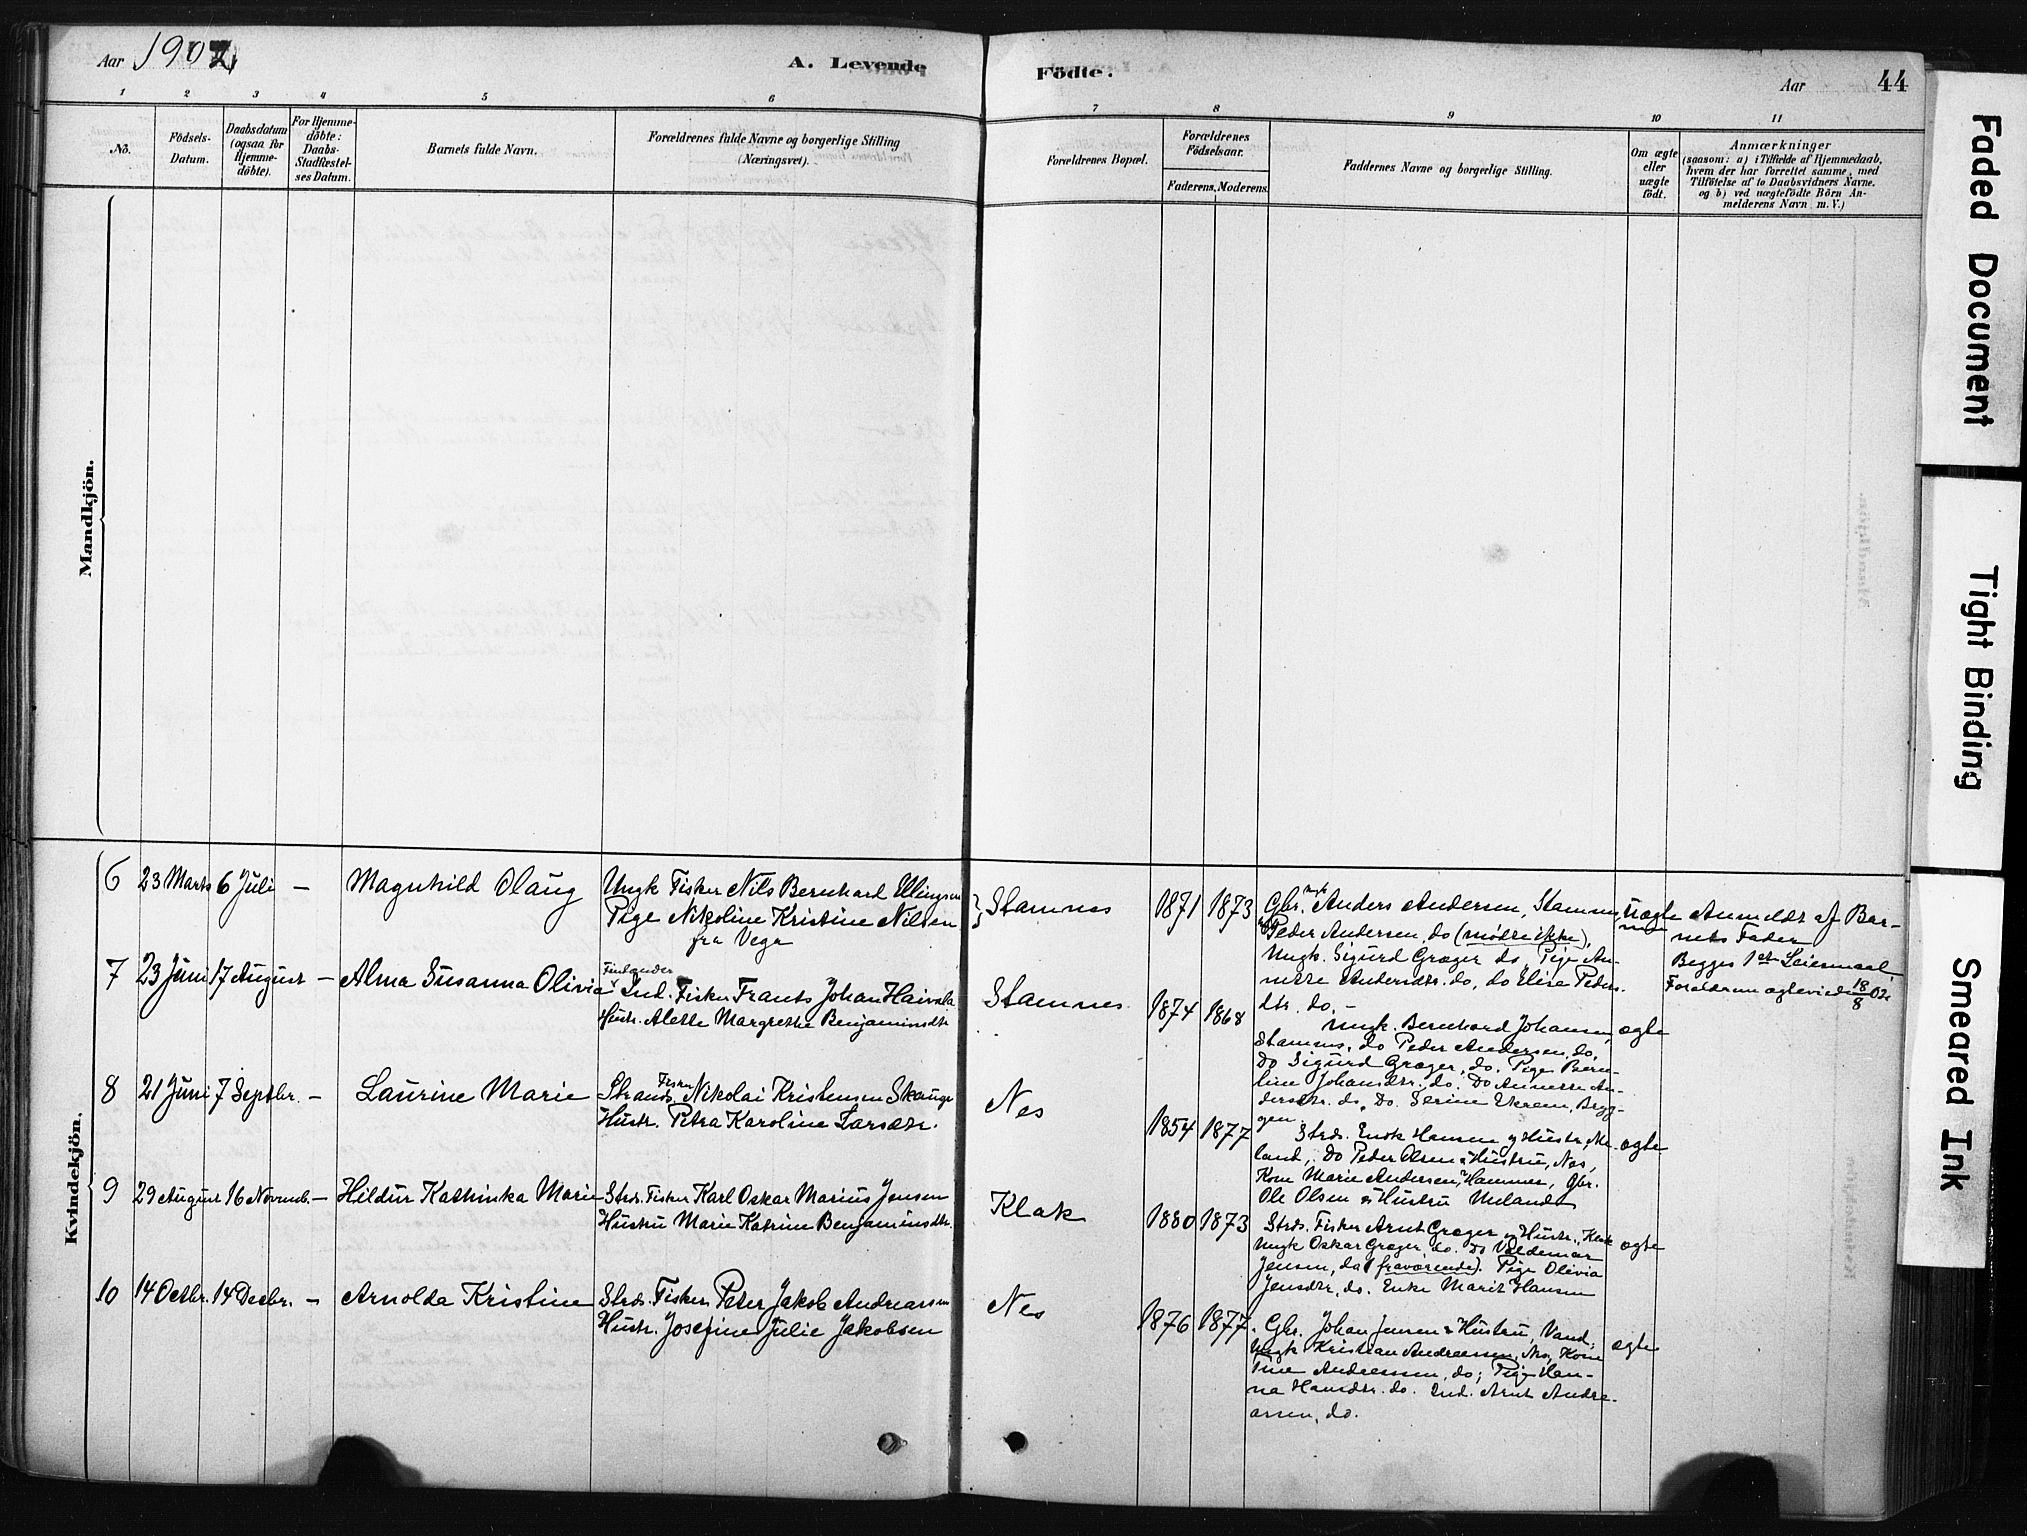 Aar 1902
A. Levende
Födte.
Aar
44
1
2
3
4
5
6
7
8
9
10
11
No.
Födsels-
Datum.
Daabsdatum
(ogsaa for
Hjemme-
döbte).
For Hjemme-
döbte:
Daabs-
Stadfæstel-
ses Datum.
Barnets fulde Navn.
Forældrenes fulde Navne og borgerlige Stilling
(Næringsvei).
Forældrenes Bopæl.
Forældrenes
Födselsaar.
Faderens. Moderens.
Faddernes Navne og borgerlige Stilling.
Om ægte
eller
uægte
födt.
Anmærkninger
(saasom: a) i Tilfælde af Hjemmedaab,
hvem der har forrettet samme, med
Tilföielse af to Daabsvidners Navne.
og b) ved uægtefödte Börn An-
melderens Navn m. V.)
Mandkjön.
Kvindekjön.
6 23 Marts 6 Juli — Magnhild Olaug
Ungk Fisker Nils Bernhard Ellingsen
Pige Nikoline Kristine Nilsen
fra Vega
Stamnes
1871 1873
Gbr. Anders Andersen, Stamnes,
Peder Andersen, do (mødte ikke),
Ungk. Sigurd Græger do, Pige An-
nette Andersdtr. do, do Elise Peders-
dtr. do.
Uægte
Anmeldt af Bar-
nets Fader
Begges 1ste Leiermaal
Forældrene ægteviede 18/8 02
7 23 Juni 17 August — Alma Susanna Olivia
Finlænder
Ind. Fisker Frants Johan Haivala
Hustr. Alette Margrethe Benjaminsdtr
Stamnes
1874 1868
Ungk. Bernhard Johansen,
Stamnes, do Peder Andersen, do,
Do Sigurd Græger, do. Pige Bern-
tine Johansdtr. do. Do Annette An-
dersdtr. do, Do. Serine Ekrem, Bryg-
gen.
ægte
8 21 Juni 7 Septbr. — Laurine Marie
Fisker
Strands. Nikolai Kristensen Skauge
Hustr. Petra Karoline Larsdtr.
Nes
1854 1877
Strds. Enok Hansen og Hustr., Me-
land, Do Peder Olsen & Hustru, Nes,
Kone Marie Andersen, Hammer, Gbr.
Ole Olsen & Hustru Meland
ægte
9 29 August 16 Novemb. — Hildur Kathinka Marie
Strds. Fisker Karl Oskar Marius Jensen
Hustru Marie Katrine Benjaminsdtr.
Klak
1880 1873
Strds. Fisker Arnt Græger og Hustr., Klak
Ungk Oskar Græger, do. Do Valdemar
Jensen, do (fraværende). Pige Olivia
Jensdtr, do. Enke Marit Hansen
ægte
10 14 Octbr. 14 Decbr. — Arnolda Kristine
Strds. Fisker Peter Jakob Andreassen
Hustr. Josefine Julie Jakobsen
Nes
1876 1877
Gbr. Johan Jensen & Hustru, Vand,
Ungk Kristian Andreassen, Nes, Kone
Trine Andreassen, do; Pige Han-
na Hansdtr. do. Ind. Arnt Andre-
assen, do.
ægte
Faded Document
Tight Binding
Smeared Ink